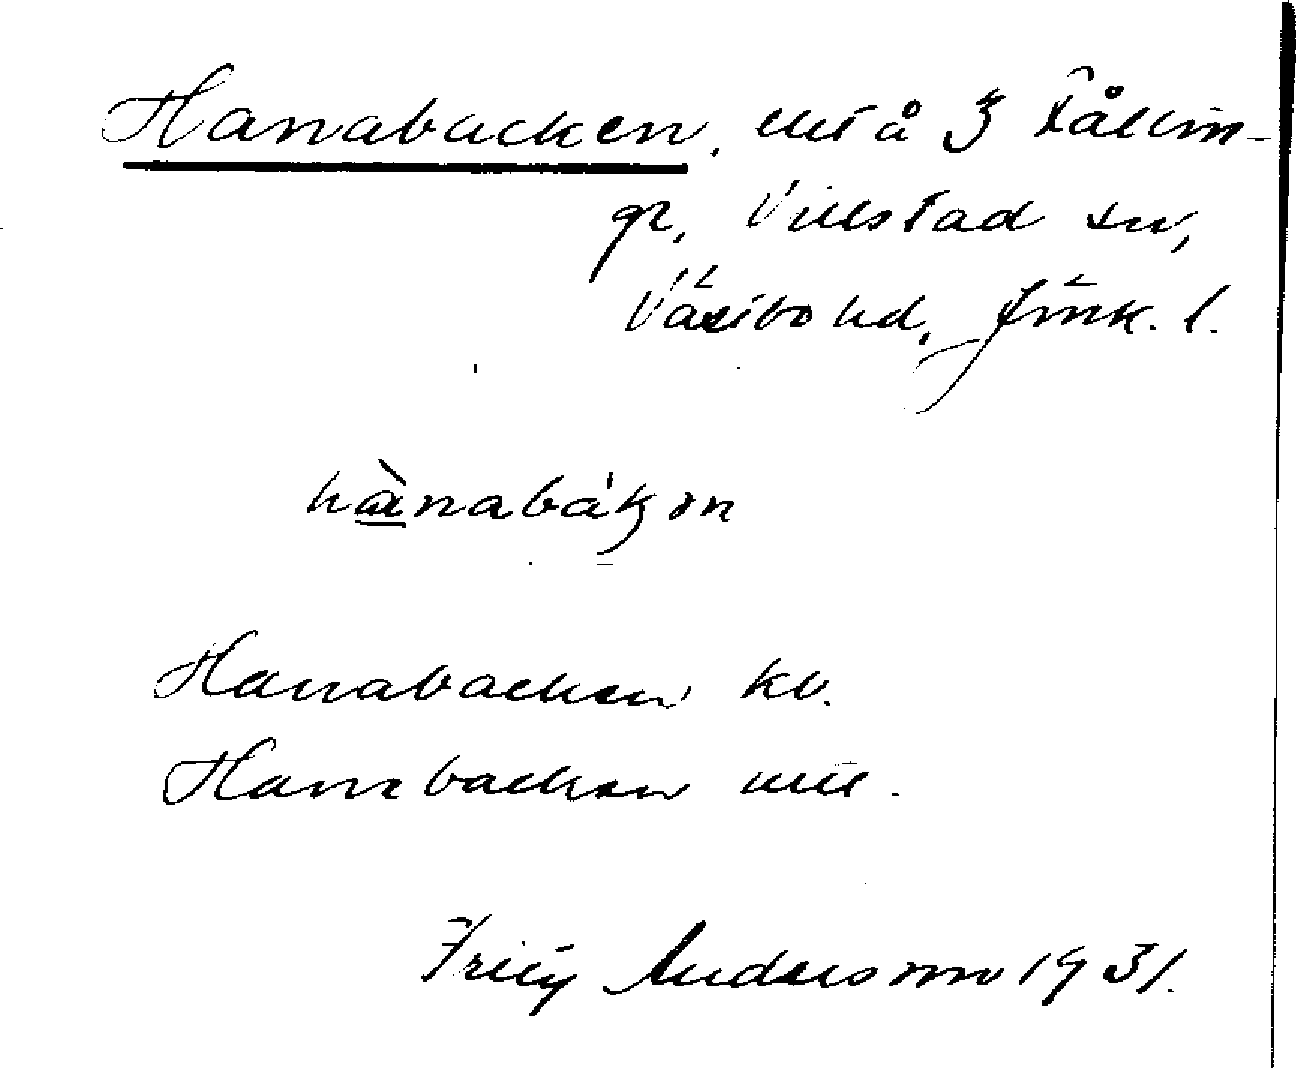 Hanabacken, utfl å 3 Kållin-
gr, Villstad sn,
Västbo hd, Jönk. l.
hànabákən
Hanabacken kv.
Hanabacken utt.
Fritz Andersson 1931.